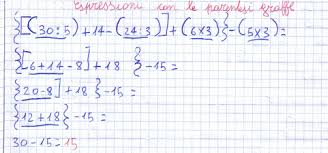 espressioni con le parentesi graffe
{[(30:5)+14-(24:3)]+(6x3)}-(5x3)=
{[6+14-8]+18 }-15=
{[20-8]+18}-15=
{12+18}-15=
30-15=15